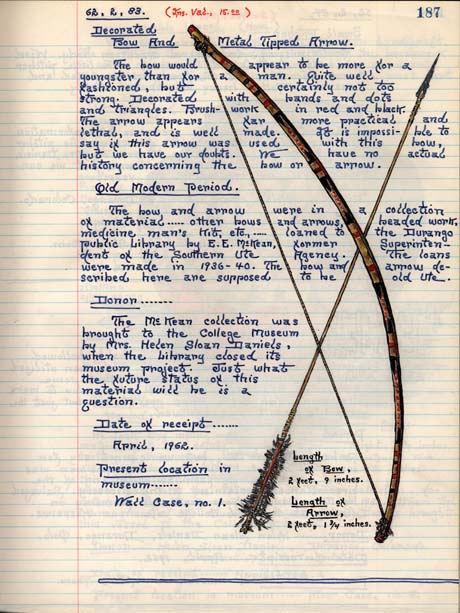 62. 2. 83. (Ins. Val., 15.00) 187
Decorated
Bow And Metal Tipped Arrow.
The bow would appear to be more for a
youngster than for a man. Quite well
fashioned, but certainly not too
strong. Decorated with bands and dots
and triangles. Brush-work in red and black.
The arrow appears far more practical and
lethal, and is well made. It is impossi-ble to
say if this arrow was used with this bow,
but we have our doubts. We have no actual
history concerning the bow or arrow.
Old Modern Period.
The bow and arrow were in a collection
of material..... other bows and arrows, beaded work,
medicine man's kit, etc.,.... loaned to the Durango
public Library by E.E. McKean, former Superinten-
dent of the Southern Ute Agency. The loans
were made in 1936-40. The bow and arrow de-
scribed here are supposed to be old Ute.
Donor.......
The McKean collection was
brought to the College Museum
by Mrs. Helen Sloan Daniels,
when the Library closed its
museum project. Just what
the future status of this
material will be is a
question.
Date of receipt.......
April, 1962.
Present location in
museum.......
Wall Case, no. 1.
Length
of Bow,
2 feet, 9 inches.
Length of
Arrow,
2 feet, 1 3/4 inches.